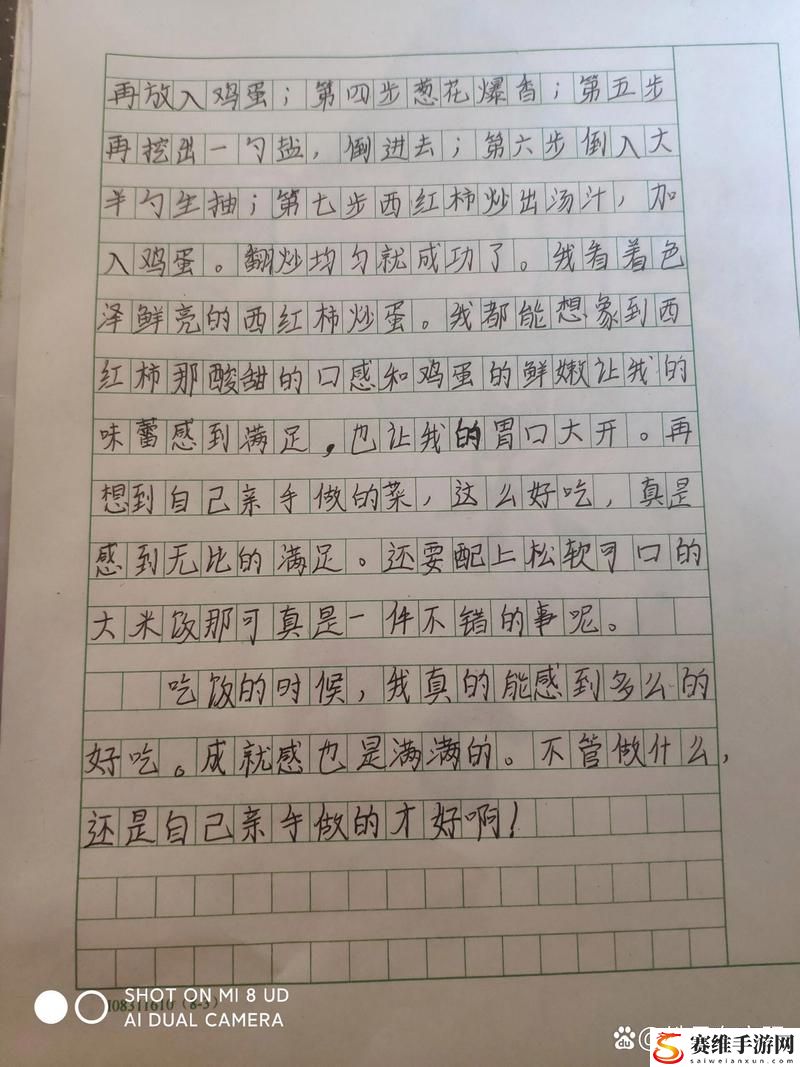 再放入鸡蛋；第四步葱花爆香；第五步
再挖出一勺盐，倒进去；第六步倒入大
半勺生抽；第七步西红柿炒出汤汁，加
入鸡蛋。翻炒均匀就成功了。我看着色
泽鲜亮的西红柿炒蛋。我都能想象到西
红柿那酸甜的口感和鸡蛋的鲜嫩让我的
味蕾感到满足，也让我的胃口大开。再
想到自己亲手做的菜，这么好吃，真是
感到无比的满足。还要配上松软可口的
大米饭那可真是一件不错的事呢。
吃饭的时候，我真的能感到多么的
好吃。成就感也是满满的。不管做什么，
还是自己亲手做的才好啊！
SHOT ON MI 8 UD
AI DUAL CAMERA
赛维手游网
saiweianxun.com